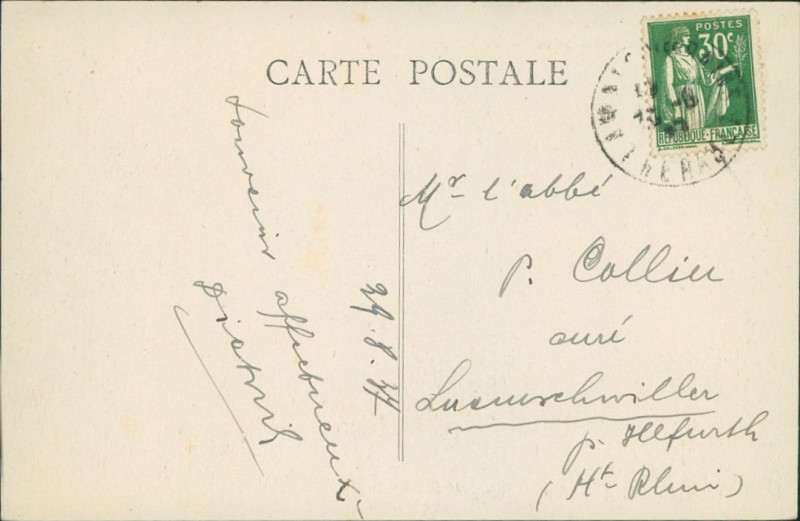 CARTE POSTALE
POSTES
30c
RÉPUBLIQUE·FRANÇAISE
Souvenir affectueux
29.8.37
Mr l'abbé
P. Collin
curé
Luemschwiller
p. Illfurth
(Ht-Rhin)